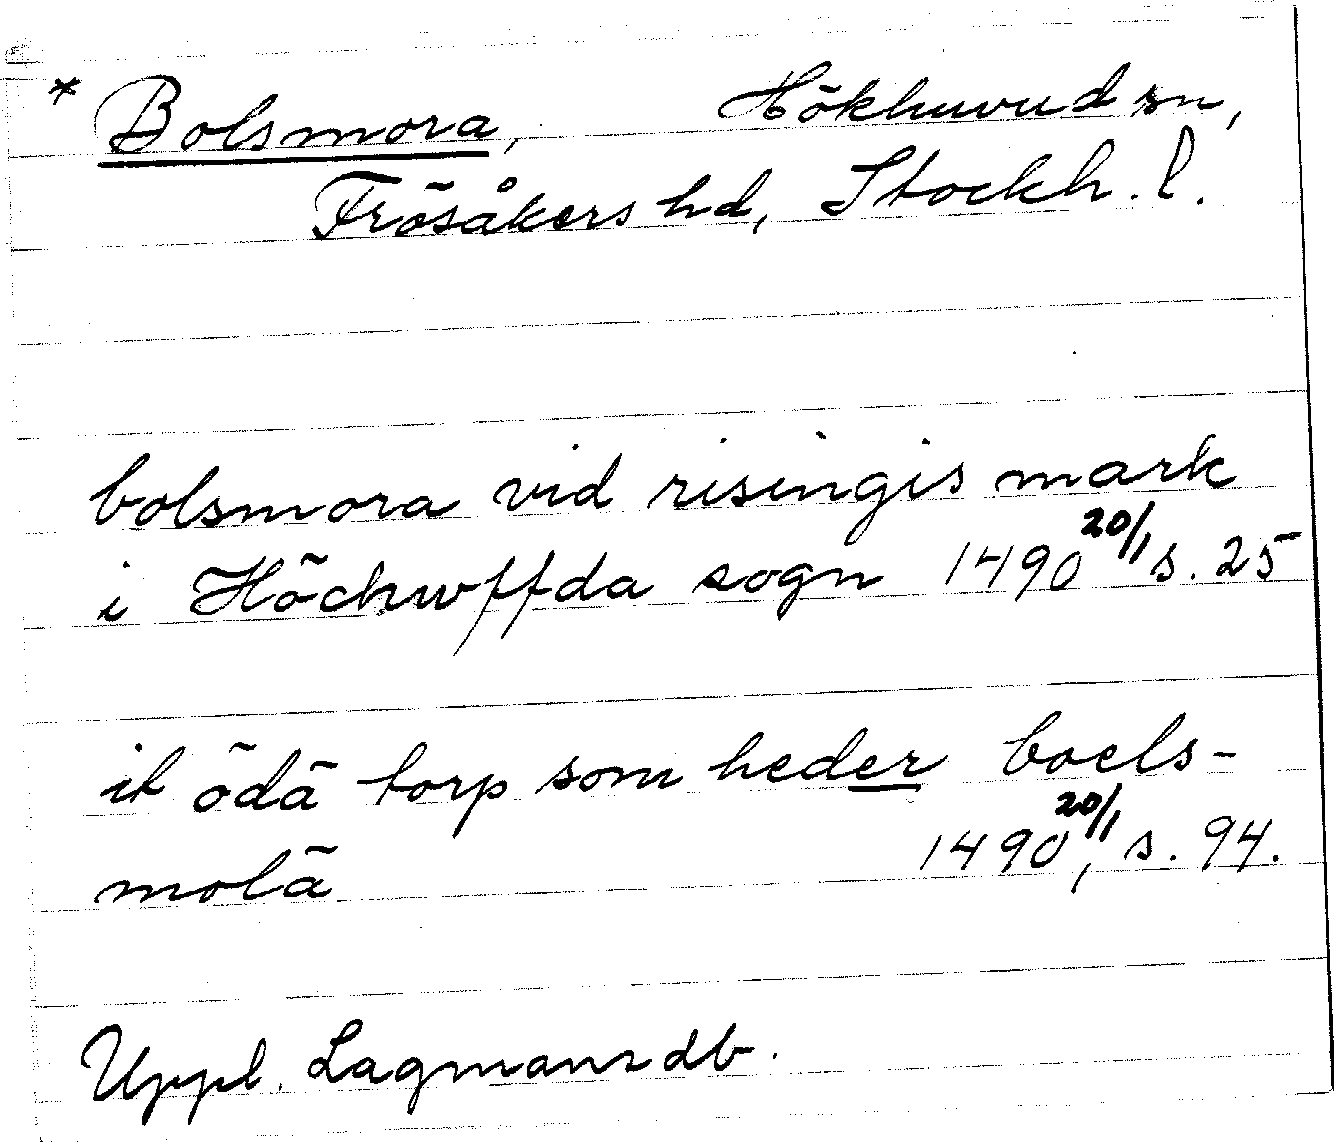 * Bolsmora, Hökhuvud sn,
Frösåkers hd, Stockh. l.
bolsmora vid risingis mark
i Höchwffda sogn 1490 20/1 s. 25
it ödä torp som heder boels-
molä 1490 20/1, s. 94.
Uppl. Lagmansdb.